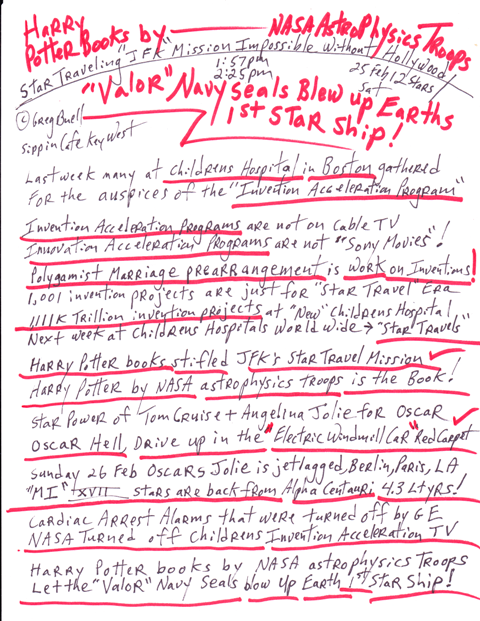 Harry
Potter Books by NASA AstroPhysics Troops
Star Traveling "JFK" Mission Impossible Without Hollywood
1:57pm
2:25pm
25 Feb 12 Stars
Sat
"Valor" Navy Seals Blew up Earths
1st Star Ship!
© Greg Buell
Sippin Cafe Key West
Last week many at Childrens Hospital in Boston gathered
For the auspices of the "Invention Acceleration Program"
Invention Acceleration Programs are not on Cable TV
Innovation Acceleration Programs are not "Sony Movies"!
Polygamist Marriage prearrangement is work on Inventions!
1,001 invention projects are just for "Star Travel" Era
1111K Trillion invention projects at "New" Childrens Hospital
Next week at Childrens Hospitals World Wide → "Star Travels"
Harry Potter books stifled JFK's Star Travel Mission ✓
Harry Potter by NASA astrophysics troops is the Book!
Star Power of Tom Cruise + Angelina Jolie for Oscar ✓
Oscar Hell, Drive up in the "Electric Windmill Car" Red Carpet
Sunday 26 Feb Oscars Jolie is jetlagged, Berlin, Paris, LA
"MI" XVII stars are back from Alpha Centauri 4.3 Lt yrs!
Cardiac Arrest Alarms that were turned off by GE
NASA Turned off Childrens Invention Acceleration TV
Harry Potter books by NASA astrophysics Troops
Let the "Valor" Navy Seals blow up Earth 1st Star Ship!